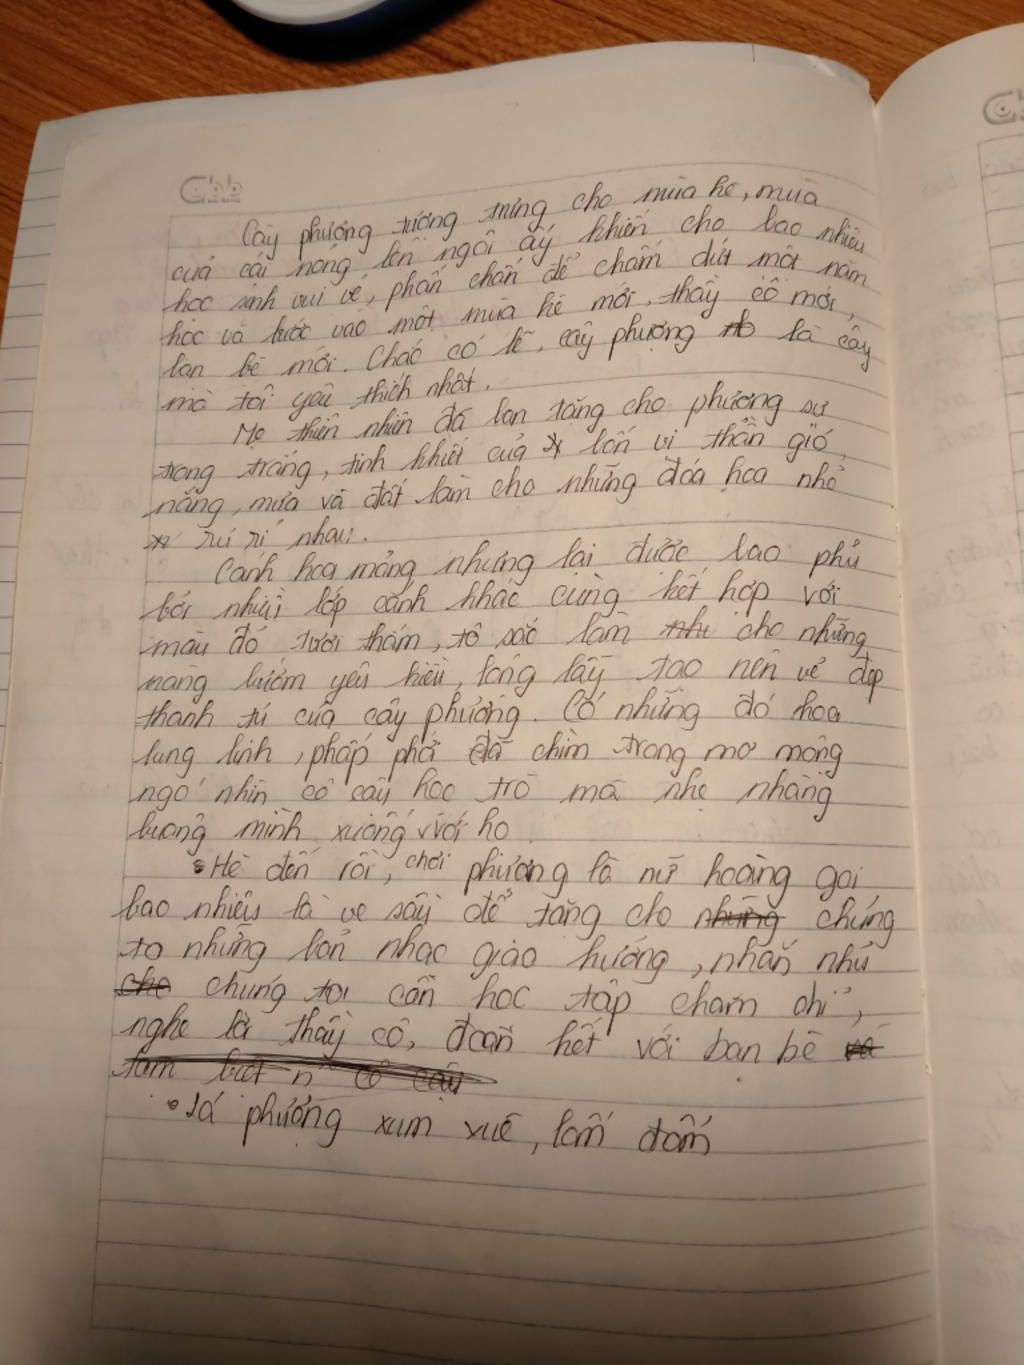 Cây phượng tượng trưng cho mùa hè, mùa
của cái nóng lên ngôi ấy khiến cho bao nhiêu
học sinh vui vẻ, phấn chấn để chấm dứt một năm
học và bước vào một mùa hè mới, thầy cô mới,
bạn bè mới. Chắc có lẽ, cây phượng là cây
mà tôi yêu thích nhất.
Mẹ thiên nhiên đã ban tặng cho phượng sự
trong trắng, tinh khiết của bốn vị thần gió,
nắng, mưa và đất làm cho những đóa hoa nhỏ
nhau.
Cánh hoa mỏng nhưng lại được bao phủ
bởi nhiều lớp cánh khác cùng kết hợp với
màu đỏ tươi thắm, tô sắc làm cho những
nàng bướm yêu kiều, lộng lẫy tạo nên vẻ đẹp
thanh tú của cây phượng. Có những đó hoa
lung linh, phấp phới đã chìm trong mơ mộng
ngó nhìn cô cậu học trò mà nhẹ nhàng
buông mình xuống với họ
Hè đến rồi, chơi phượng là nữ hoàng gọi
bao nhiêu là ve sầu để tặng cho chúng
ta những bản nhạc giao hưởng, nhắn nhủ
chúng tôi cần học tập chăm chỉ,
nghe lời thầy cô, đoàn kết với bạn bè
Lá phượng xum xuê, lấm đấm